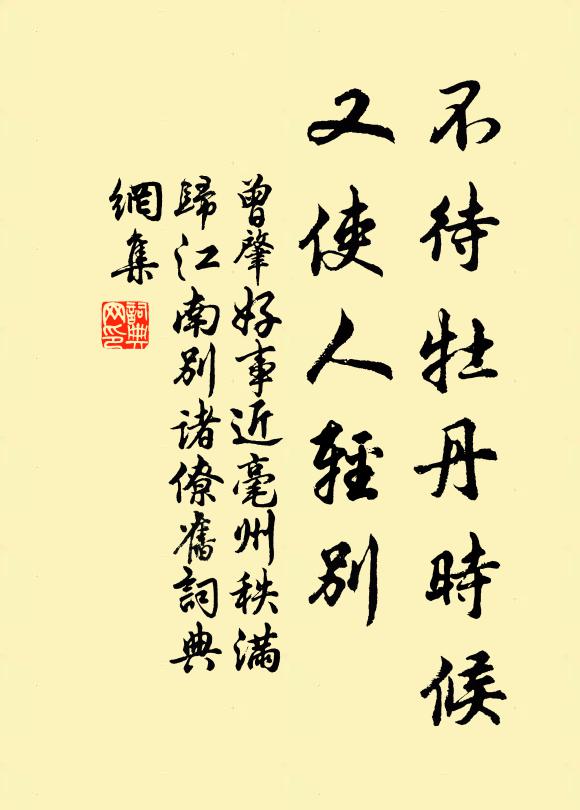 不待牡丹時候
又使人輕別
曾肇好事近亳州秩滿
歸江南別諸僚舊詞典
網集
詞典網印